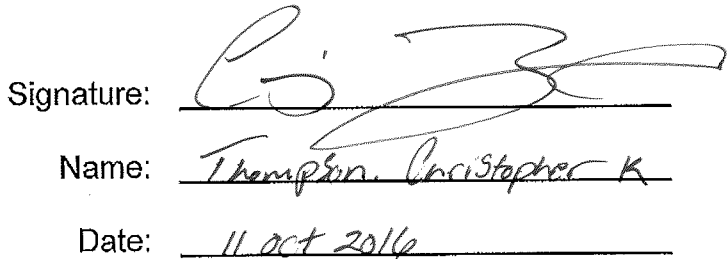 Signature:
Name: Thompson. Christopher K
Date: 11 oct 2016